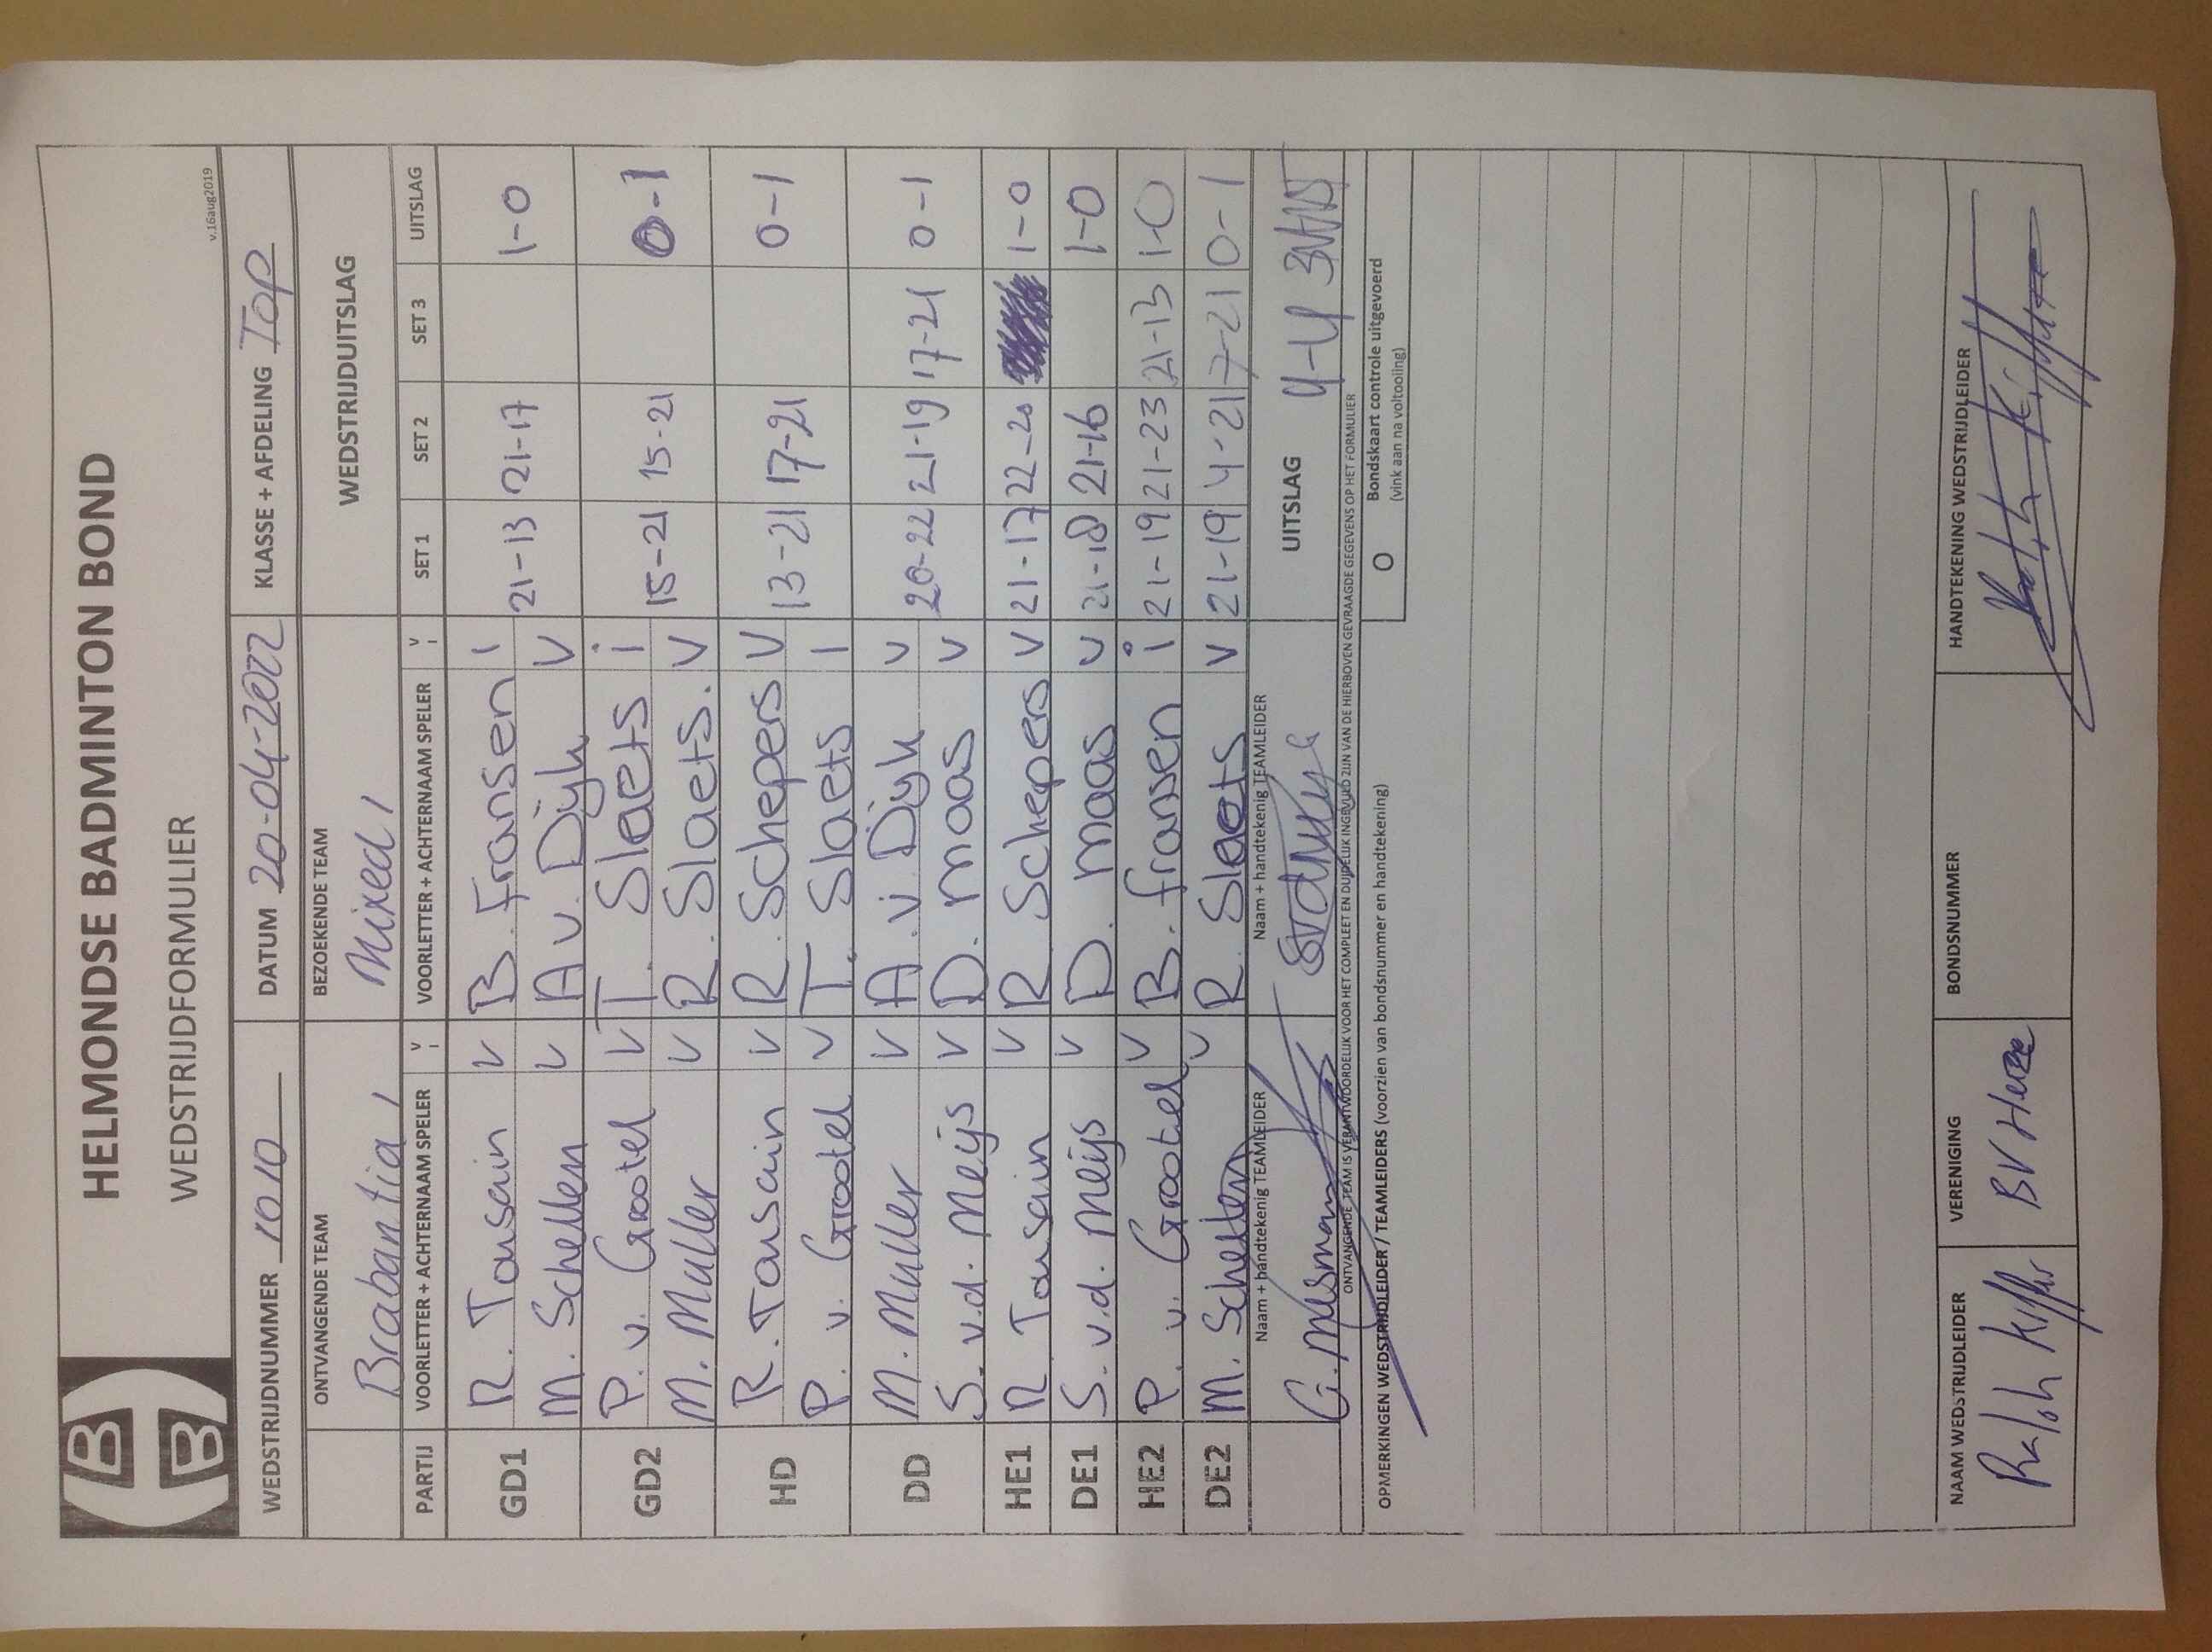 HELMONDSE BADMINTON BOND
WEDSTRIJDFORMULIER
v.16aug2019
WEDSTRIJDNUMMER 1010 DATUM 20-04-2022 KLASSE + AFDELING Top
ONTVANGENDE TEAM BEZOEKENDE TEAM WEDSTRIJDUITSLAG
Brabantia 1 Mixed 1
PARTIJ VOORLETTER + ACHTERNAAM SPELER V I VOORLETTER + ACHTERNAAM SPELER V I SET 1 SET 2 SET 3 UITSLAG
GD1 R. Tousain V B. Fransen I 21-13 21-17 1-0
M. Schellen V A v. Dijk V
GD2 P. v. Grootel V T. Slaets i 15-21 15-21 0-1
M. Muller V R. Slaets. V
HD R. Tousain V R. Schepers V 13-21 17-21 0-1
P. v. Grootel V T. Slaets I
DD M. Muller V A. v. Dijk V 20-22 21-19 17-21 0-1
S. v.d. Meijs V D. Maas V
HE1 R Tousain V R Schepers V 21-17 22-20 1-0
DE1 S. v.d. Meijs V D. Maas V 21-18 21-16 1-0
HE2 P. v. Grootel V B. fransen i 21-19 21-23 21-13 1-0
DE2 M. Schellen V R. Slaets V 21-19 4-21 7-21 0-1
Naam + handtekenig TEAMLEIDER Naam + handtekenig TEAMLEIDER UITSLAG 4-4
ONTVANGENDE TEAM IS VERANTWOORDELIJK VOOR HET COMPLEET EN DUIDELIJK INGEVULD ZIJN VAN DE HIERBOVEN GEVRAAGDE GEGEVENS OP HET FORMULIER
OPMERKINGEN WEDSTRIJDLEIDER / TEAMLEIDERS (voorzien van bondsnummer en handtekening)
O Bondskaart controle uitgevoerd
(vink aan na voltooiing)
NAAM WEDSTRIJDLEIDER VERENIGING BONDSNUMMER HANDTEKENING WEDSTRIJDLEIDER
Ralph BV